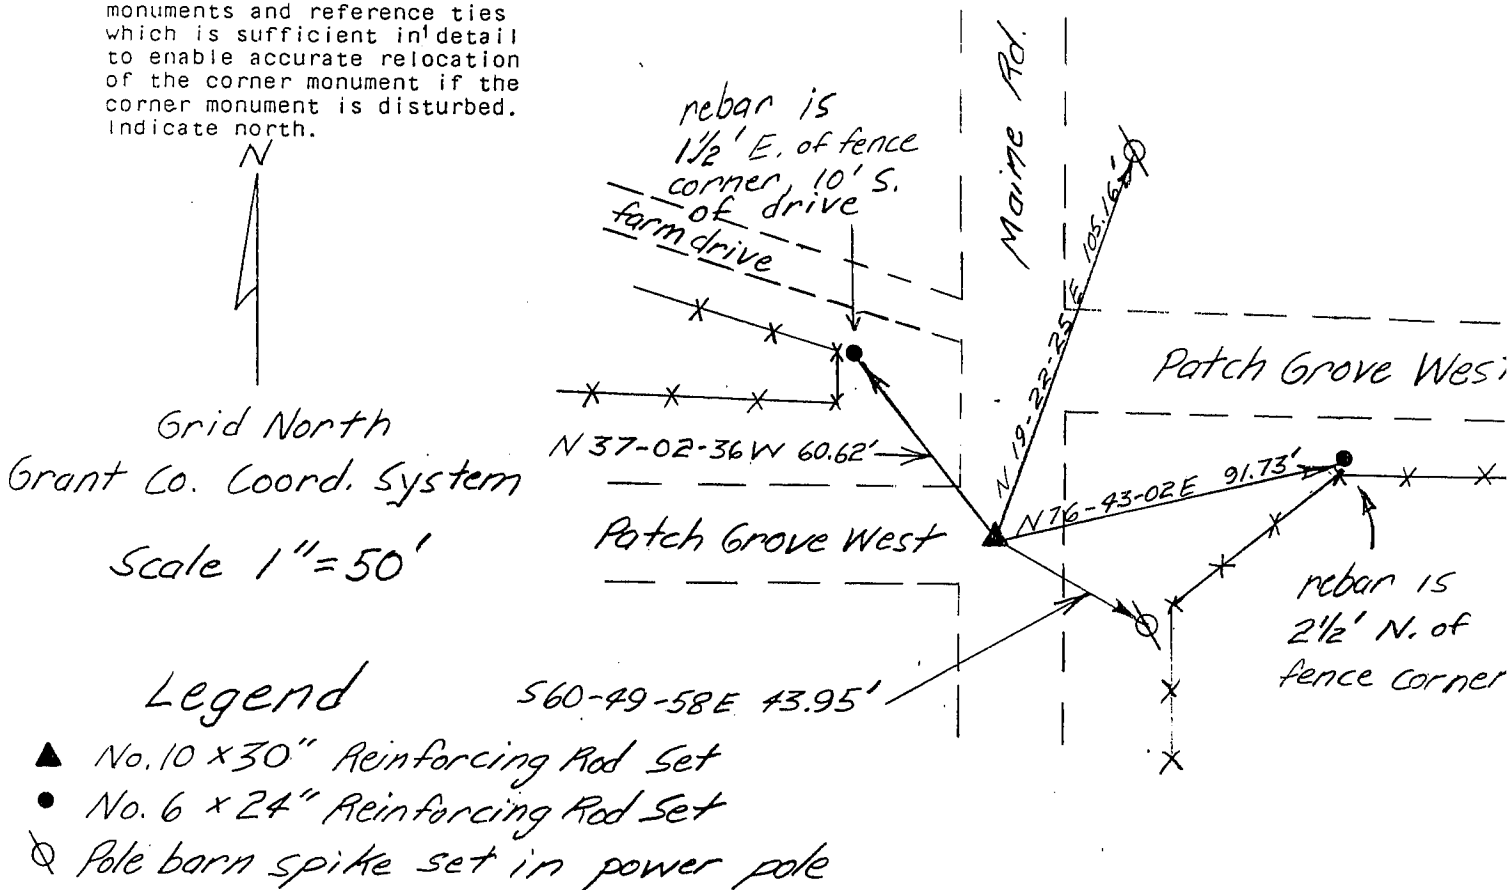 monuments and reference ties
which is sufficient in detail
to enable accurate relocation
of the corner monument if the
corner monument is disturbed.
Indicate north.
N
Grid North
Grant Co. Coord. System
Scale 1"=50'
rebar is
1½' E. of fence
corner, 10' S.
of drive
farm drive
Maine Rd.
N 19-22-25 E 105.16'
Patch Grove West
N 37-02-36 W 60.62'
N 76-43-02 E 91.73'
Patch Grove West
rebar is
2½' N. of
fence corner
S60-49-58E 43.95'
Legend
No. 10 x 30" Reinforcing Rod Set
No. 6 x 24" Reinforcing Rod Set
Pole barn spike set in power pole